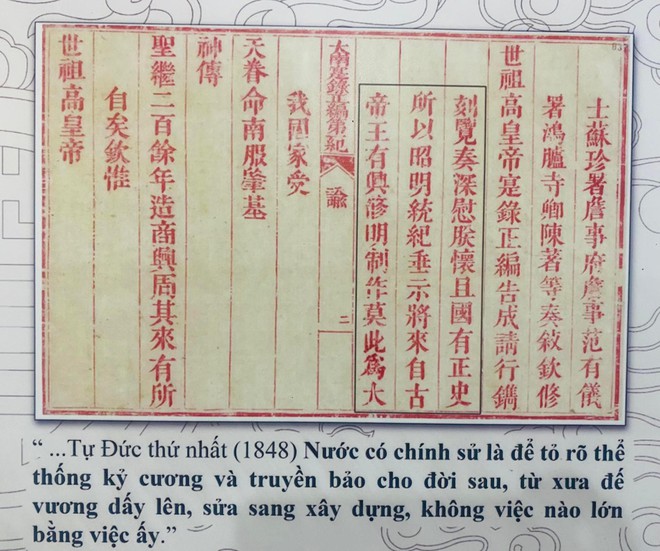 士蘇珍署詹事府詹事范有儀
署鴻臚寺卿陳著等奏敘欽修
世祖高皇帝寔錄正編告成請行鐫
刻覽奏深慰朕懷且國有正史
所以昭明統紀垂示將來自古
帝王有興修明制作莫此爲大
大南寔錄正編第一紀 諭 二
我國家受
天眷命南服肇基
神傳
聖繼二百餘年造商興周其來有所
自矣欽惟
世祖高皇帝
“ ...Tự Đức thứ nhất (1848) Nước có chính sử là để tỏ rõ thể
thống kỷ cương và truyền bảo cho đời sau, từ xưa đế
vương dấy lên, sửa sang xây dựng, không việc nào lớn
bằng việc ấy.”